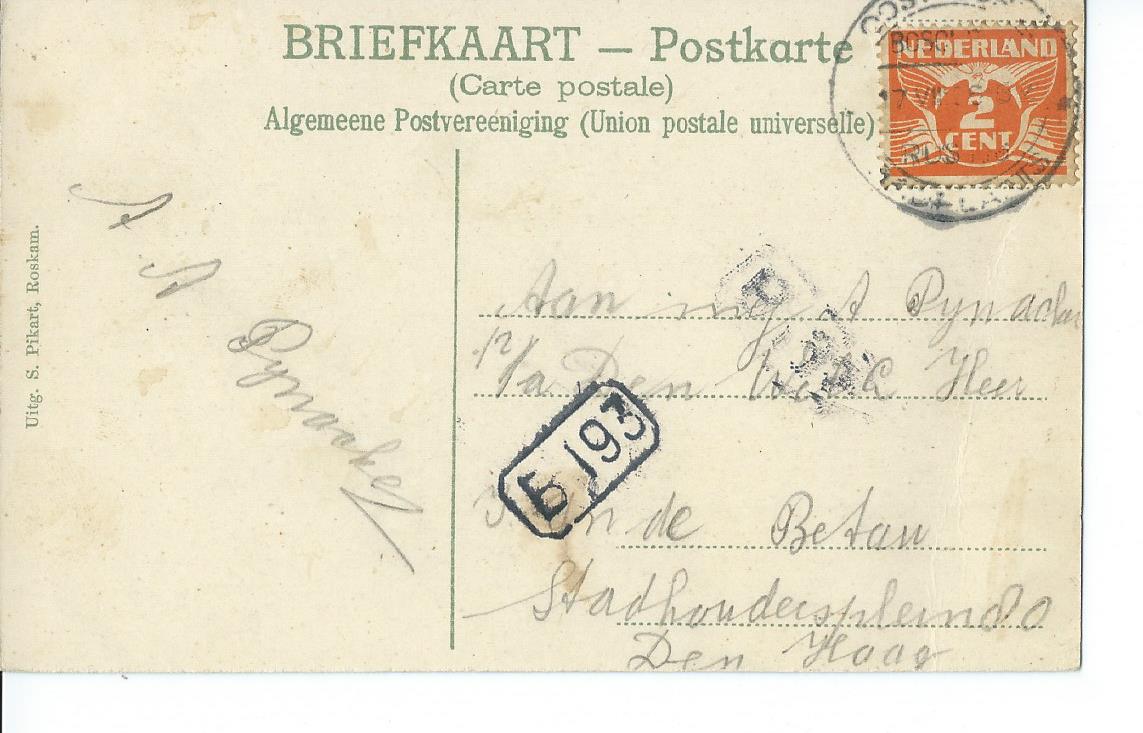 BRIEFKAART — Postkarte
(Carte postale)
Algemeene Postvereeniging (Union postale universelle)
NEDERLAND
2
CENT
Uitg. S. Pikart, Roskam.
A
A
Pynacker
Aan mej A Pynacker
p/a Den Heer
de Betau
Stadhoudersplein 80
Den Haag
B 193